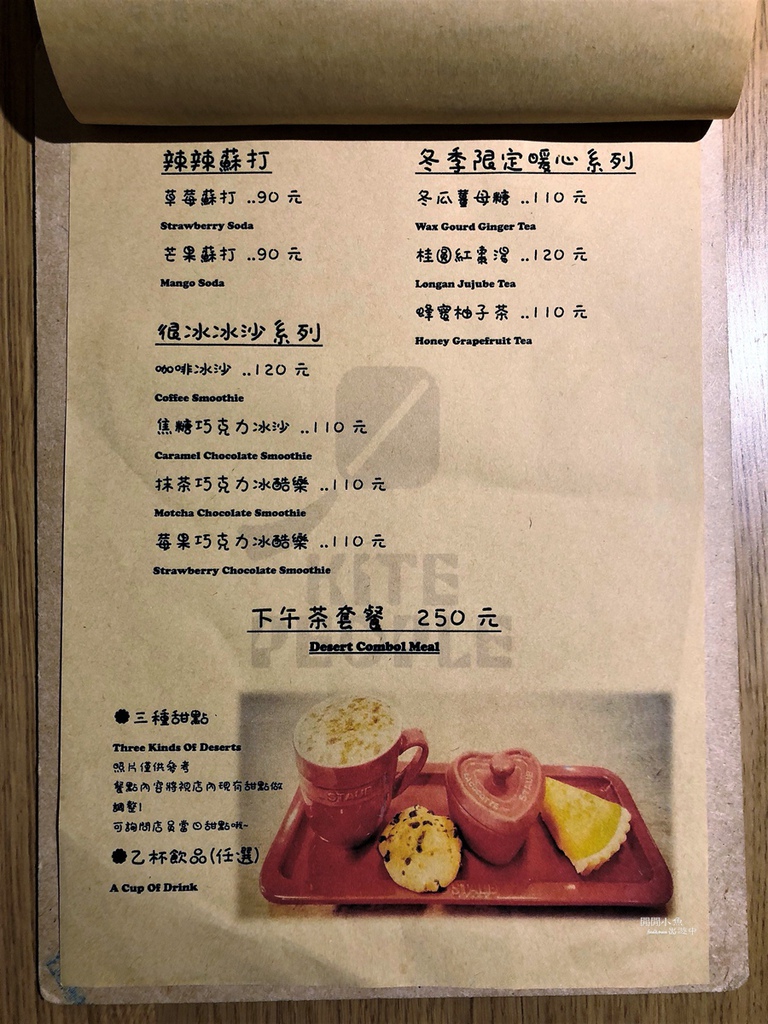 辣辣蘇打
草莓蘇打 ..90 元
Strawberry Soda
芒果蘇打 ..90 元
Mango Soda
很冰冰沙系列
咖啡冰沙 ..120 元
Coffee Smoothie
焦糖巧克力冰沙 ..110 元
Caramel Chocolate Smoothie
抹茶巧克力冰酷樂 ..110 元
Motcha Chocolate Smoothie
莓果巧克力冰酷樂 ..110 元
Strawberry Chocolate Smoothie
冬季限定暖心系列
冬瓜薑母糖 ..110 元
Wax Gourd Ginger Tea
桂圓紅棗湯 ..120 元
Longan Jujube Tea
蜂蜜柚子茶 ..110 元
Honey Grapefruit Tea
KITE
PEOPLE
下午茶套餐 250 元
Desert Combol Meal
三種甜點
Three Kinds Of Deserts
照片僅供參考
餐點內容將視店內現有甜點做
調整!
可詢問店員當日甜點哦~
乙杯飲品(任選)
A Cup Of Drink
STAUB
STAUB
STAUB
開開小魚
出遊中